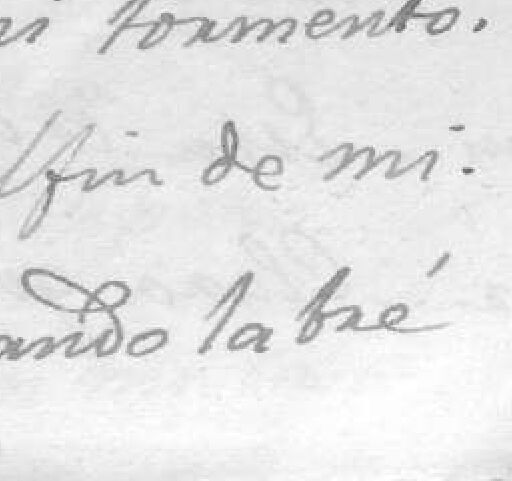 tormento.
fin de mi.
ando labré